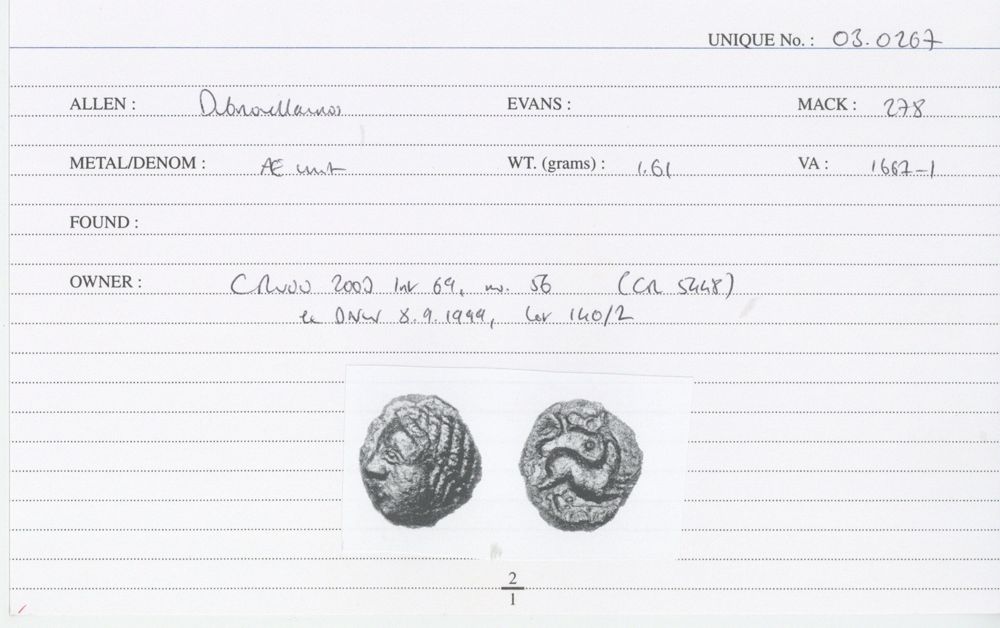 UNIQUE No. : 03.0267
ALLEN : Dubnovellaunos EVANS : MACK : 278
METAL/DENOM : Æ unit WT. (grams) : 1.61 VA : 1667-1
FOUND :
OWNER : 69, no. 56 (CR 5448)
ex DNW 8.9.1999, lot 140/2
2
1